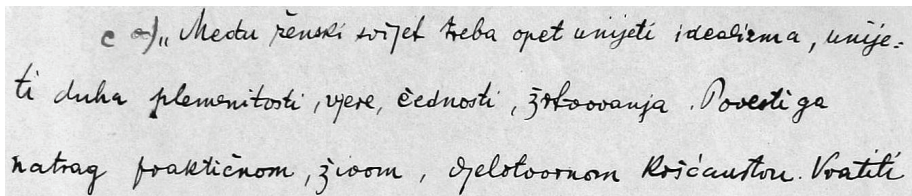 c a) „Među ženski svijet treba opet unijeti idealizma, unije-
ti duha plemenitosti, vjere, čednosti, žrtvovanja. Povesti ga
natrag praktičnom, živom, djelotvornom kršćanstvu. Vratiti